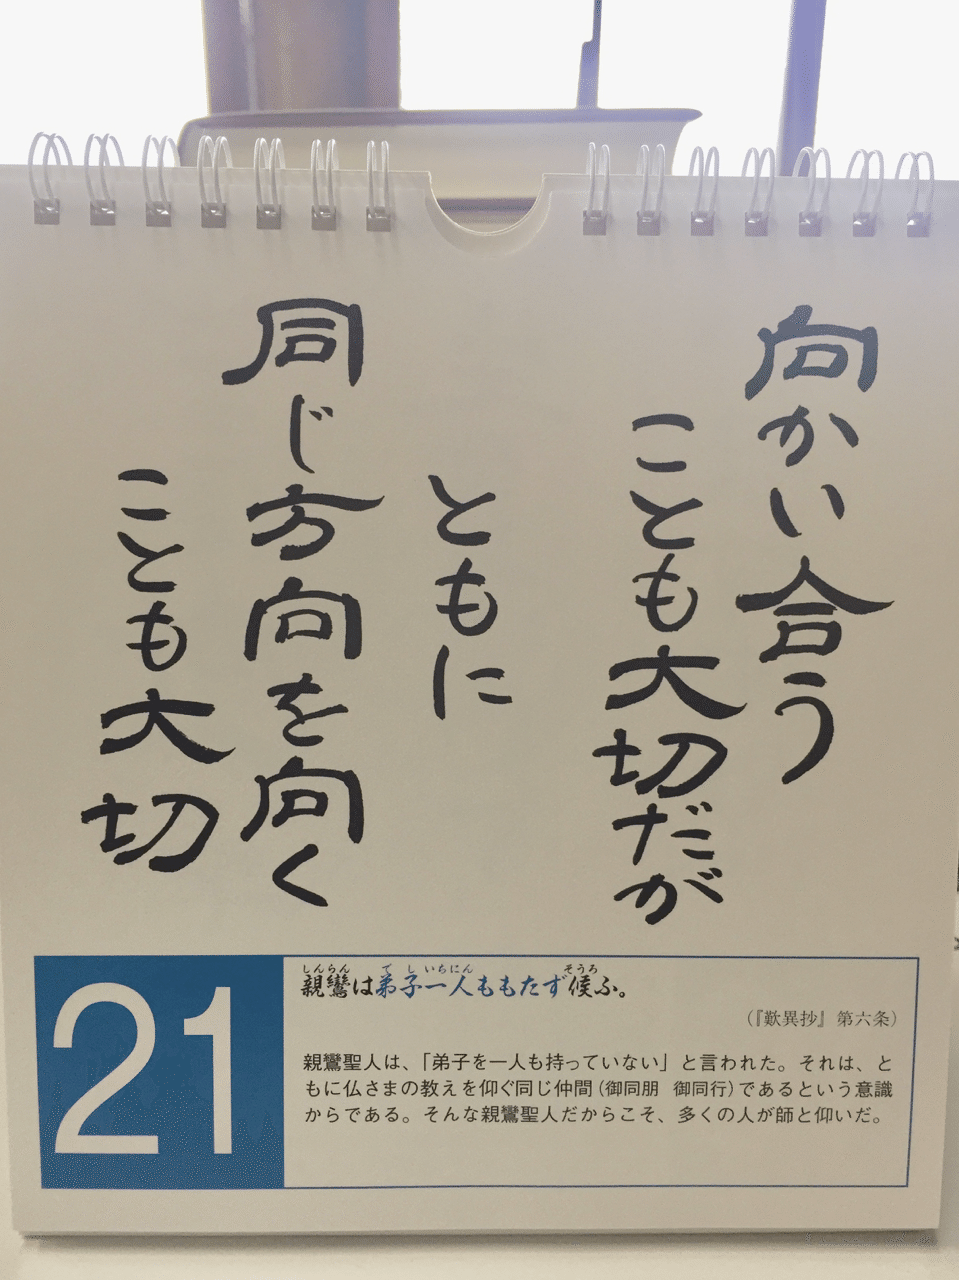 向かい合う
ことも大切だが
ともに
同じ方向を向く
ことも大切
21
親鸞は弟子一人ももたず候ふ。
しんらん でし いちにん そうろ
(『歎異抄』第六条)
親鸞聖人は、「弟子を一人も持っていない」と言われた。それは、と
もに仏さまの教えを仰ぐ同じ仲間(御同朋 御同行)であるという意識
からである。そんな親鸞聖人だからこそ、多くの人が師と仰いだ。